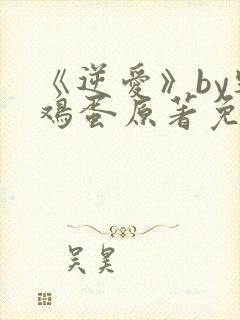 《逆愛》by
鸡蛋原著免
吴昊